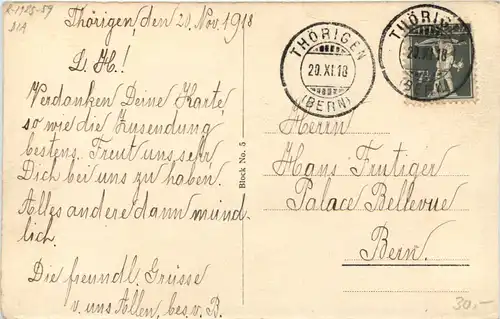 K-1985-59
Thörigen, den 20. Nov. 1918
L. H.!
Verdanken Deine Karte,
so wie die Zusendung
bestens. Freut uns sehr
Dich bei uns zu haben.
Alles andere dann münd-
lich.
Die freundl. Grüsse
v. uns Allen, bes. v. B.
Block No. 5
THÖRIGEN
20.XI.18
(BERN)
THÖRIGEN
20.XI.18
(BERN)
7½
Herrn
Hans Frutiger
Palace Bellevue
Bern.
30.-